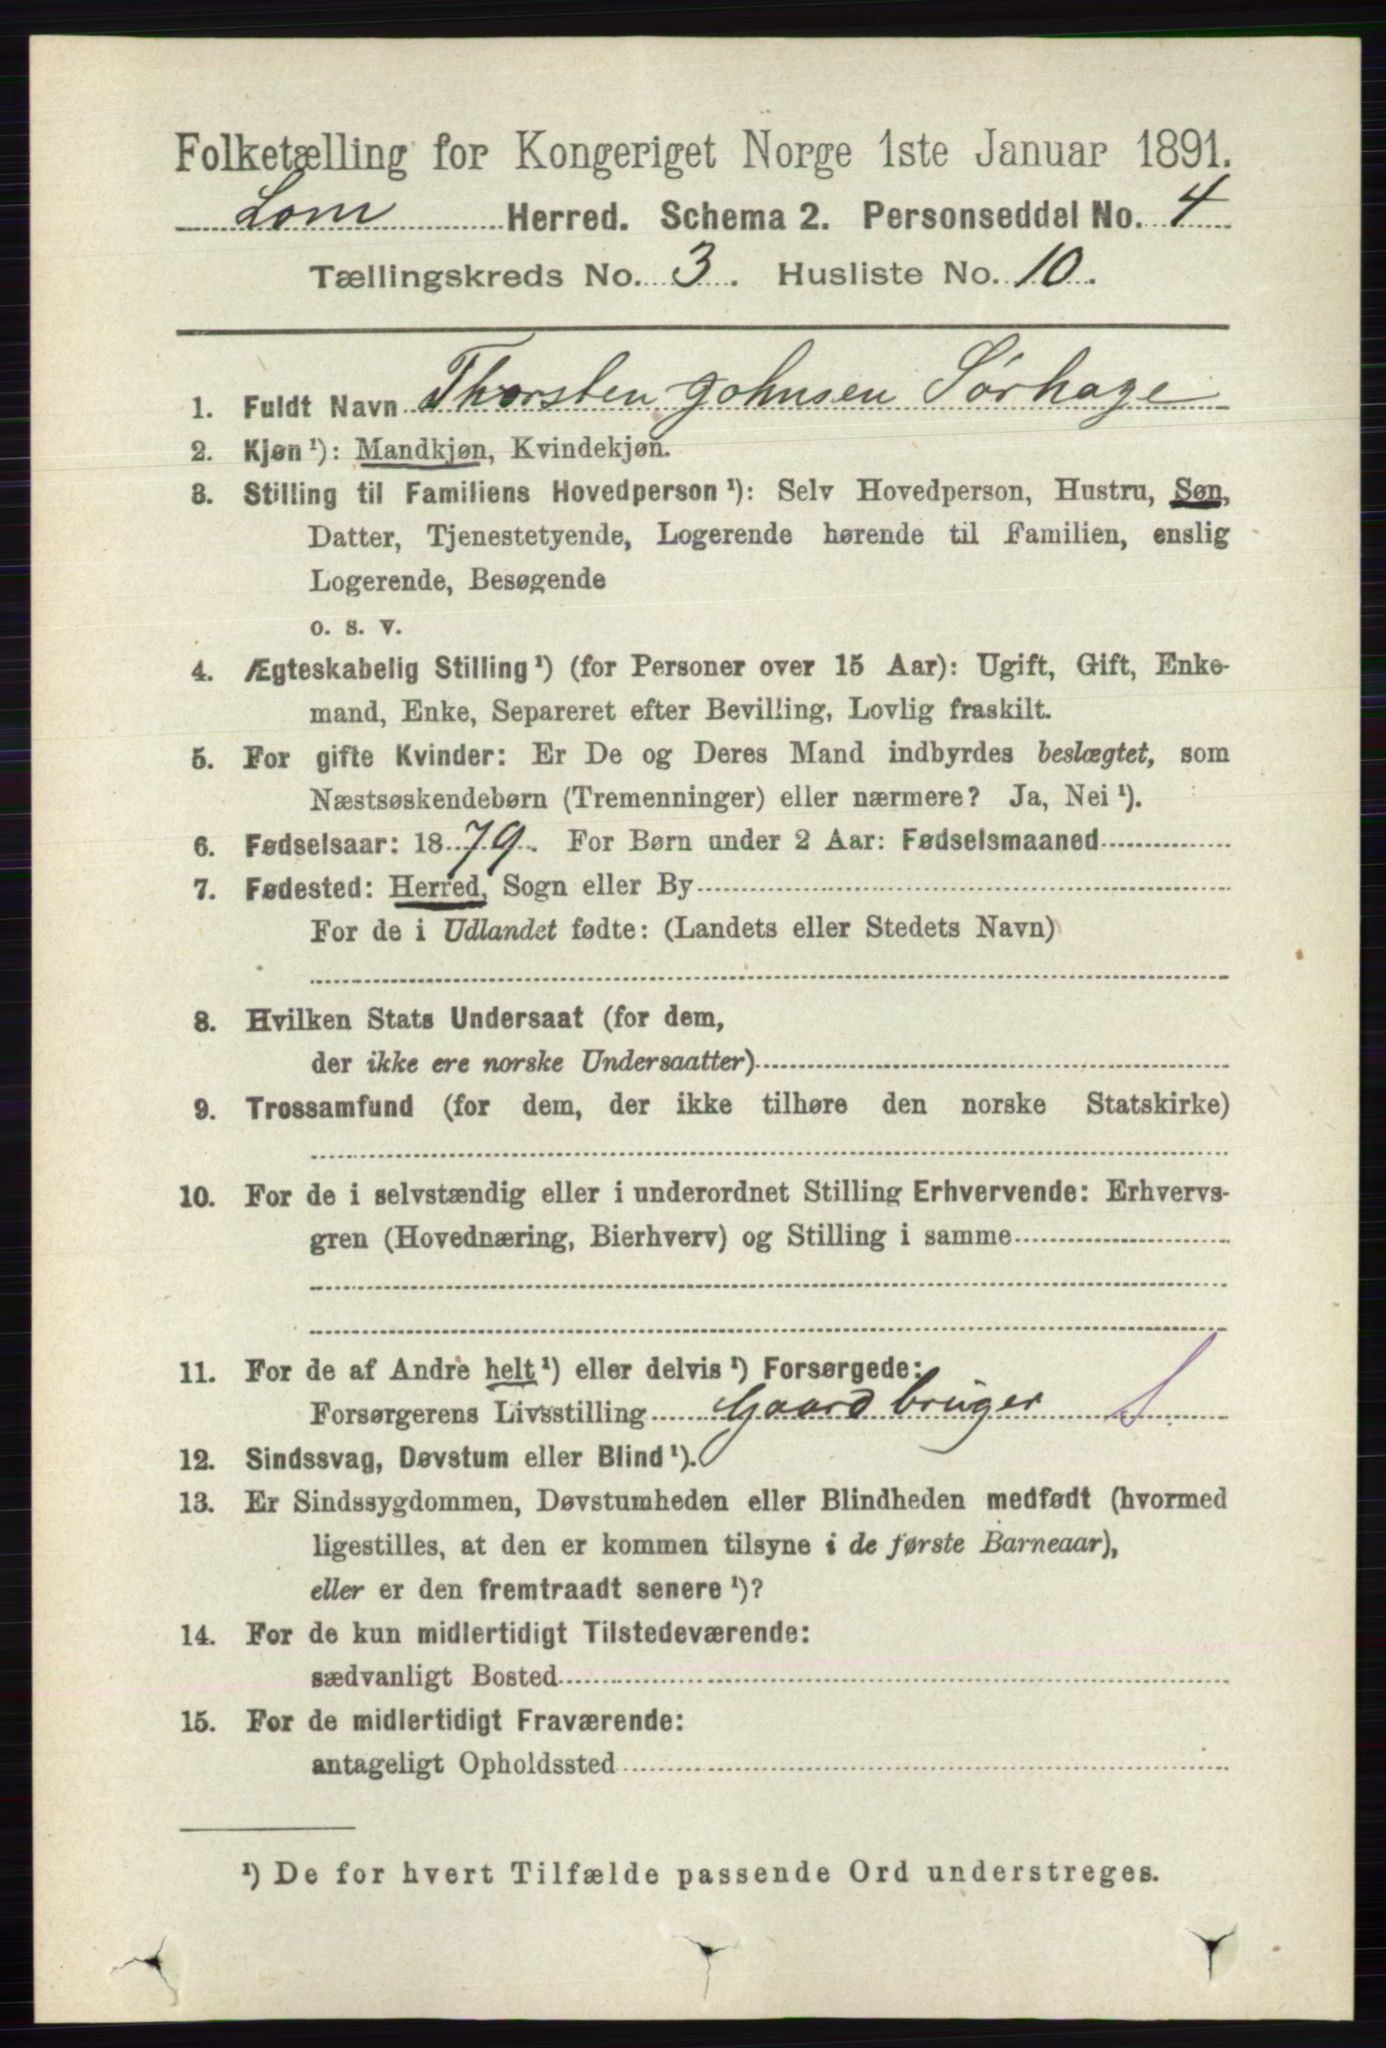 Folketælling for Kongeriget Norge 1ste Januar 1891.
Lom Herred. Schema 2. Personseddel No. 4
Tællingskreds No. 3. Husliste No. 10.
1. Fuldt Navn Thorsten Johnsen Sørhage
2. Kjøn¹): Mandkjøn, Kvindekjøn.
3. Stilling til Familiens Hovedperson¹): Selv Hovedperson, Hustru, Søn,
Datter, Tjenestetyende, Logerende hørende til Familien, enslig
Logerende, Besøgende
o. s. v.
4. Ægteskabelig Stilling¹) (for Personer over 15 Aar): Ugift, Gift, Enke-
mand, Enke, Separeret efter Bevilling, Lovlig fraskilt.
5. For gifte Kvinder: Er De og Deres Mand indbyrdes beslægtet, som
Næstsøskendebørn (Tremenninger) eller nærmere? Ja, Nei¹).
6. Fødselsaar: 1879. For Børn under 2 Aar: Fødselsmaaned
7. Fødested: Herred, Sogn eller By
For de i Udlandet fødte: (Landets eller Stedets Navn)
8. Hvilken Stats Undersaat (for dem,
der ikke ere norske Undersaatter)
9. Trossamfund (for dem, der ikke tilhøre den norske Statskirke)
10. For de i selvstændig eller i underordnet Stilling Erhvervende: Erhvervs-
gren (Hovednæring, Bierhverv) og Stilling i samme
11. For de af Andre helt¹) eller delvis¹) Forsørgede:
Forsørgerens Livsstilling Gaardbruger S.
12. Sindssvag, Døvstum eller Blind¹).
13. Er Sindssygdommen, Døvstumheden eller Blindheden medfødt (hvormed
ligestilles, at den er kommen tilsyne i de første Barneaar),
eller er den fremtraadt senere¹)?
14. For de kun midlertidigt Tilstedeværende:
sædvanligt Bosted
15. For de midlertidigt Fraværende:
antageligt Opholdssted
¹) De for hvert Tilfælde passende Ord understreges.